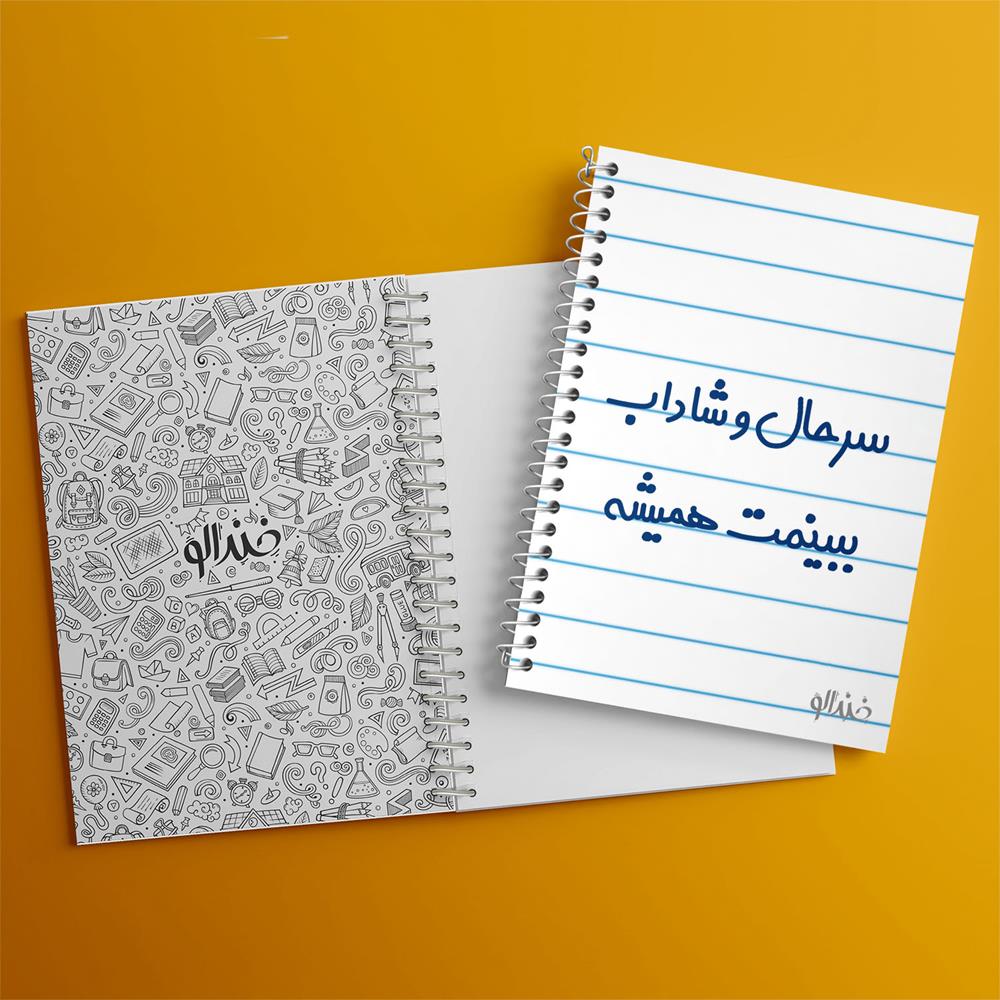 سرحال و شاداب
ببینمت همیشه
خندالو
خندالو